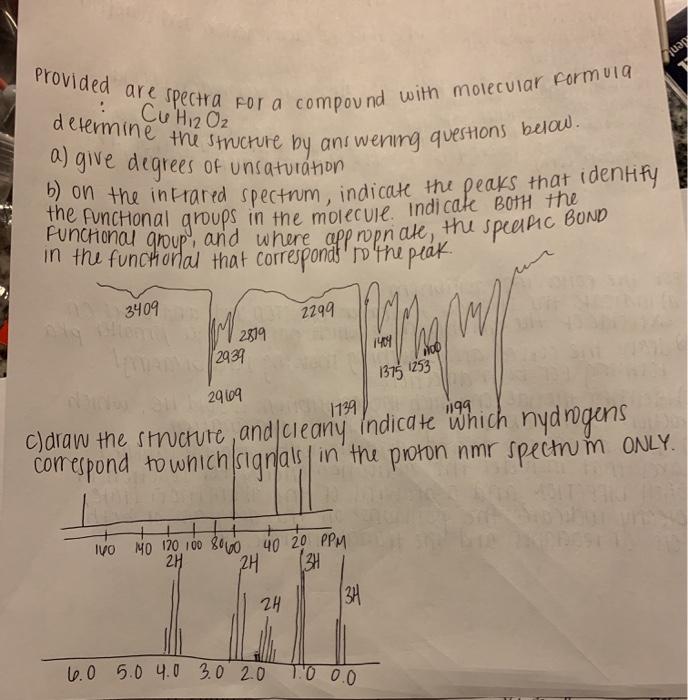 Provided are spectra for a compound with molecular formula
: C6 H12 O2
determine the structure by answering questions below.
a) give degrees of unsaturation
b) on the infrared spectrum, indicate the peaks that identify
the functional groups in the molecule. Indicate BOTH the
functional group, and where appropriate, the specific BOND
in the functional that corresponds to the peak.
3409 2299
2879
2939
2969
1464
1375 1253 1100
1739 1199
c) draw the structure, and clearly indicate which hydrogens
correspond to which signals in the proton nmr spectrum ONLY.
160 140 120 100 80 60 40 20 PPM
2H 2H 3H
2H 3H
6.0 5.0 4.0 3.0 2.0 1.0 0.0